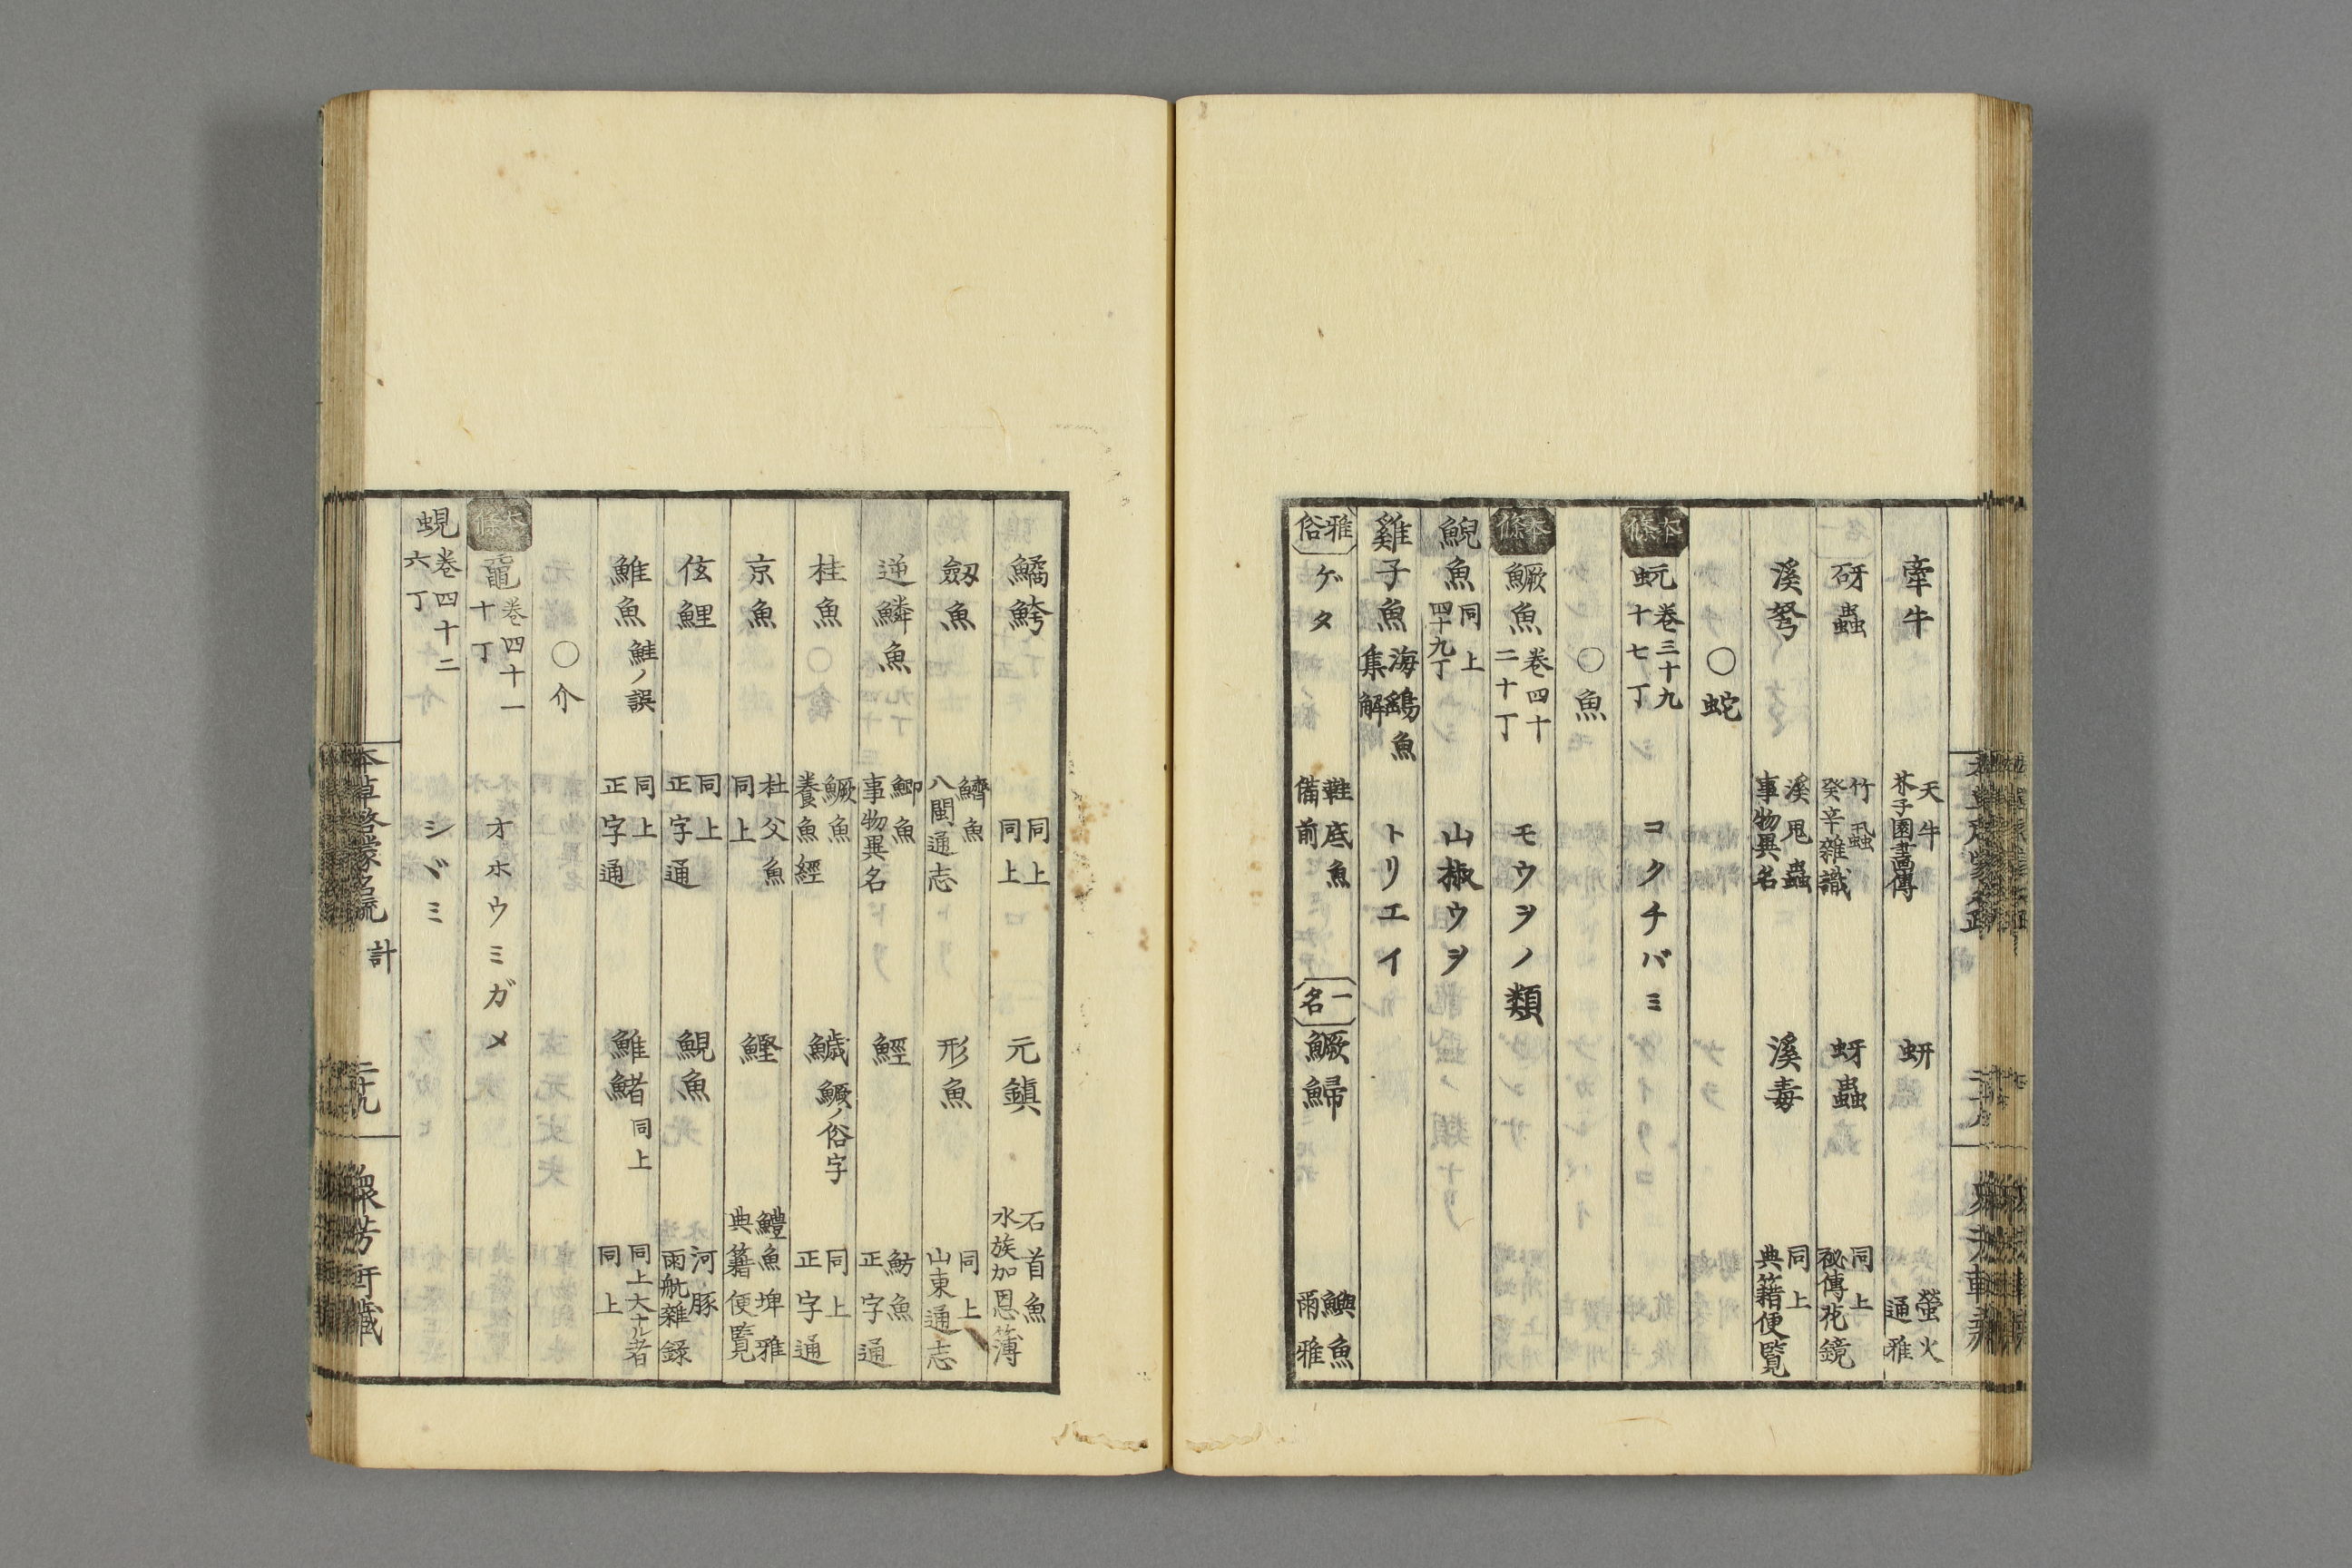 牽牛 天牛 芥子園畫傳 蚈 螢火 通雅
砑蟲 竹蝨 癸辛雜識 蚜蟲 同上 秘傳花鏡
溪弩 溪鬼蟲 事物異名 溪毒 同上 典籍便覽
○蛇
本條 蚖 卷三十九 十七丁 コクチバミ
○魚
本條 鱖魚 卷四十 二十丁 モウヲノ類
鯢魚 同上 四十九丁 山椒ウヲ
雞子魚 海鷂魚 集解 トリエイ
雅俗 ゲタ 鞋底魚 備前 一名 鱖鯞 鱮魚 爾雅
鱊鮬 同上 同上 元鎮 石首魚 水族加恩簿
劔魚 鱭魚 八閩通志 形魚 同上 山東通志
逆鱗魚 鯽魚 事物異名 鯁 魴魚 正字通
桂魚 鱖魚 養魚經 鱥 鱖ノ俗字 同上 正字通
京魚 杜父魚 同上 鰹 鱧魚 埤雅 典籍便覽
伭鯉 同上 正字通 鯢魚 河豚 雨航雜録
鯡魚 鮭ノ誤 同上 正字通 鯡鯺 同上 同上大ナル者 同上
○介
本條 黿 卷四十一 十丁 オホウミガメ
蜆 卷四十二 六丁 シヾミ
本草啓蒙名疏 計 二十九 衆芳軒藏